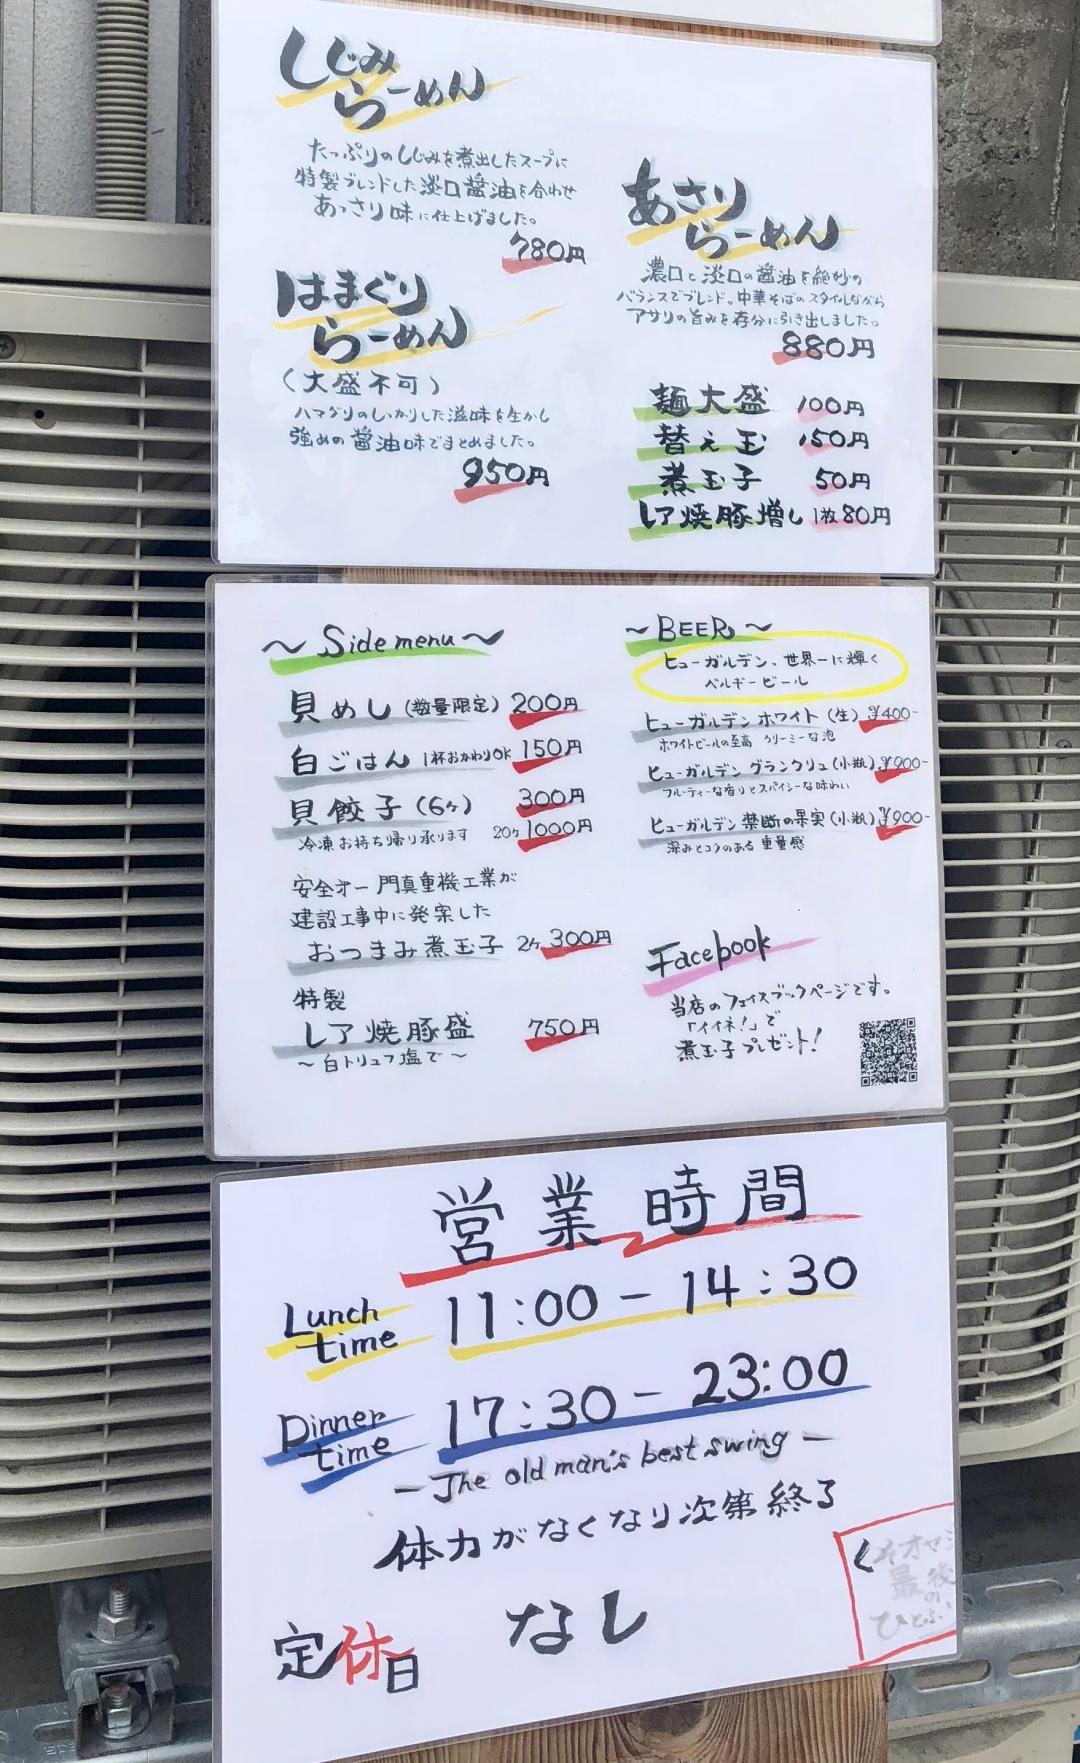 しじみ
らーめん
たっぷりのしじみを煮出したスープに
特製ブレンドした淡口醤油を合わせ
あっさり味に仕上げました。
780円
はまぐり
らーめん
(大盛不可)
ハマグリのしっかりした滋味を生かし
強めの醤油味でまとめました。
950円
あさり
らーめん
濃口と淡口の醤油を絶妙の
バランスでブレンド。中華そばのスタイルながら
アサリの旨みを存分に引き出しました。
880円
麺大盛 100円
替え玉 150円
煮玉子 50円
レア焼豚増し 1枚80円
〜Side menu〜
貝めし(数量限定) 200円
白ごはん 1杯おかわりOK 150円
貝餃子(6ヶ) 300円
冷凍お持ち帰り承ります 20ヶ1000円
安全オー門真重機工業が
建設工事中に発案した
おつまみ煮玉子 2ヶ300円
特製
レア焼豚盛 750円
〜白トリュフ塩で〜
〜BEER〜
ヒューガルデン、世界一に輝く
ベルギービール
ヒューガルデンホワイト(生)¥400-
ホワイトビールの至高 クリーミーな泡
ヒューガルデン グランクリュ(小瓶)¥900-
フルーティーな香りとスパイシーな味わい
ヒューガルデン禁断の果実(小瓶)¥900-
深みとコクのある重量感
Facebook
当店のフェイスブックページです。
「イイネ!」で
煮玉子プレゼント!
営業時間
Lunch
time
11:00-14:30
Dinner
time
17:30-23:00
-The old man's best swing-
体力がなくなり次第終了
定休日 なし
最後
の